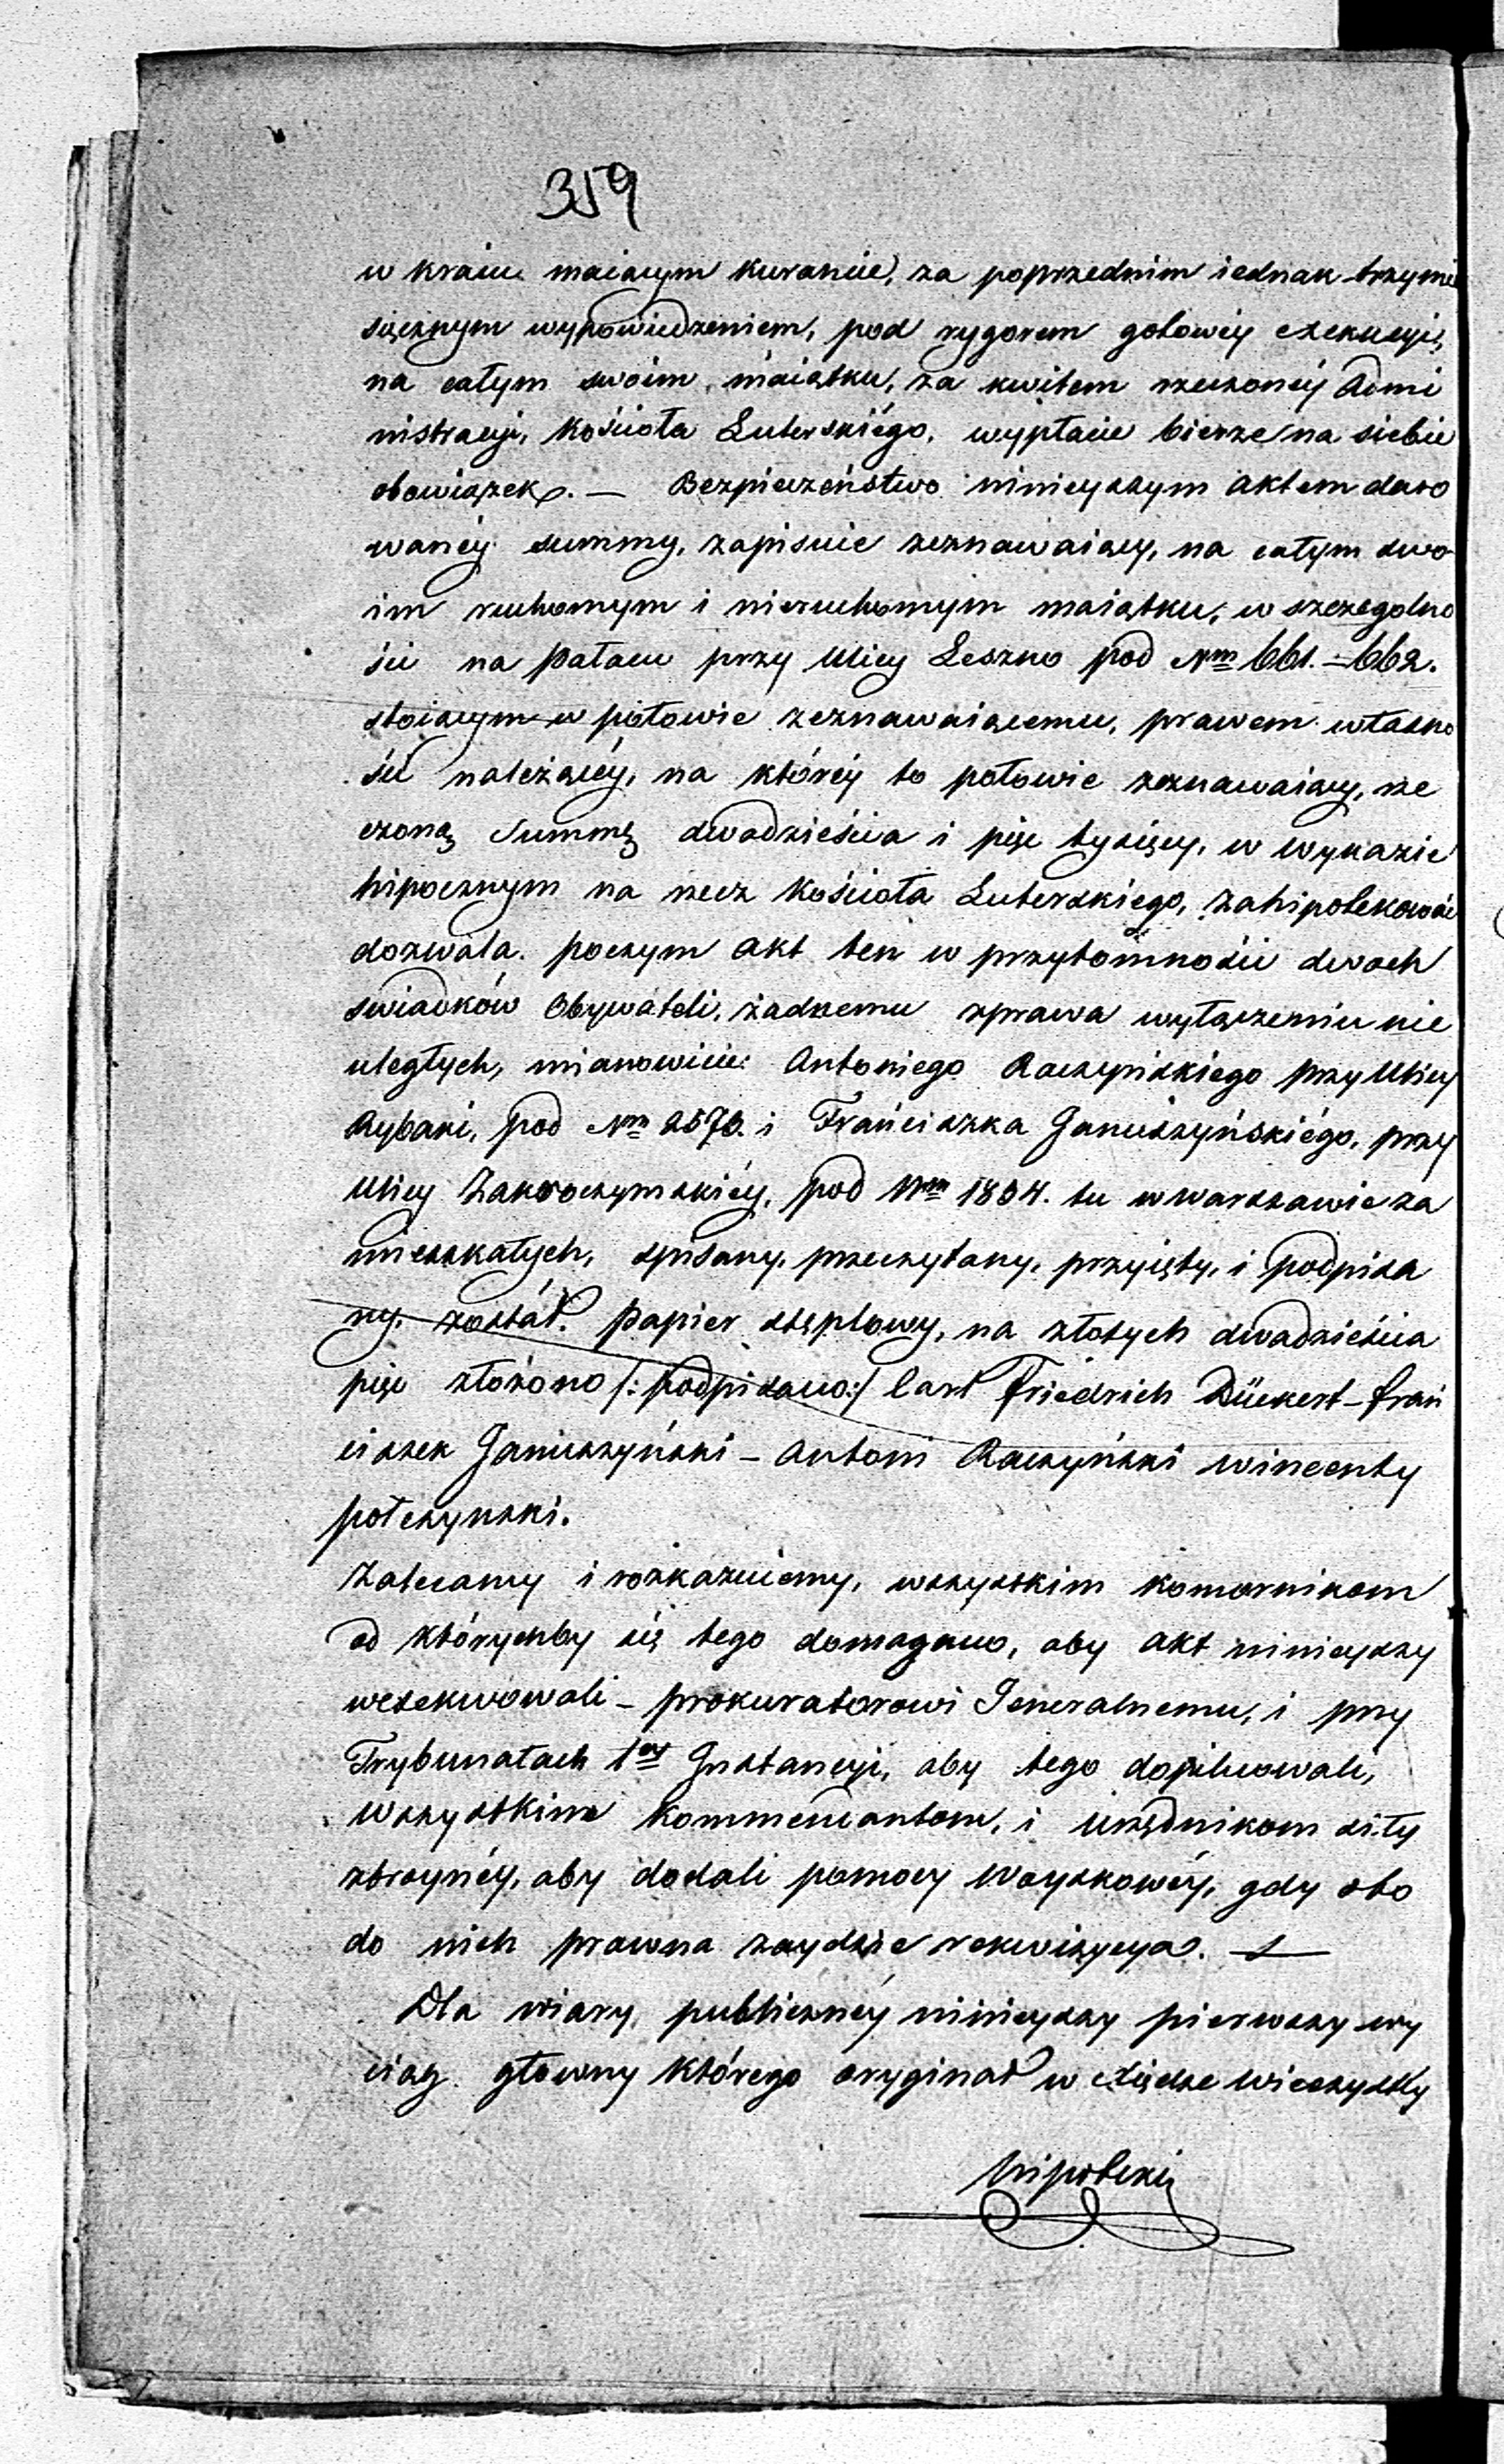 359
w kraiu maiącym kurancie, za poprzednim iednak trzymie
sięcznym wypowiedzeniem, pod rygorem gotowéy exekucyi,
na całym swoim maiątku, za kwitem rzeczonéy Admi
nistracyi, Kościoła Luterskiégo, wypłacie bierze na siebie
obowiązek. — Bezpieczeństwo ninieyszym aktem daro
wanéy summy, zapisuie zeznawaiący, na całym swo
im ruchomym i nieruchomym maiątku, w szczególno
ści na Pałacu przy Ulicy Leszno pod Nrm 661.=662.
stoiącym w połowie zeznawaiącemu, prawem własno
ści należącéy, na któréy to połowie zeznawaiący, rze
czoną Summę dwadzieścia i pięc tysięcy, w wykazie
hipocznym na rzecz Kościoła Luterskiego, zahipotekować
dozwala. poczym Akt ten w przytomności dwoch
swiadków Obywateli, żadnemu zprawa wyłączeniu nie
uległych, mianowicie: Antoniego Raczyńskiego przy Ulicy
Rybaki, pod Nrm 2570. i Frańciszka Januszyńskiégo, przy
Ulicy Zakroczymskiéy, pod Nrm 1834. tu w Warszawie za
mieszkałych, spisany, przeczytany, przyięty, i podpisa
ny, został. Papier stęplowy, na złotych dwadzieścia
pięc złożono /:podpisano:/ Carl Friedrich Dückert – Frań
ciszek Januszyński – Antoni Raczyński Wincenty
Potczynski.
Zalecamy i rozkazuiemy, wszystkim komornikom
od którychby się tego domagano, aby akt ninieyszy
wexekwowali – prokuratorowi Jeneralnemu, i przy
Trybunałach 1ey Jnstancyi, aby tego dopilnowali,
Wszystkim Kommendantom, i Urzędnikom siły
zbroynéy, aby dodali pomocy Woyskowéy, gdy oto
do nich prawna zaydzie rekwizycya. —
Dla wiary publicznéy ninieyszy pierwszy wy
ciąg głowny którego oryginał w Xiędze wieczystéy
hipoteki